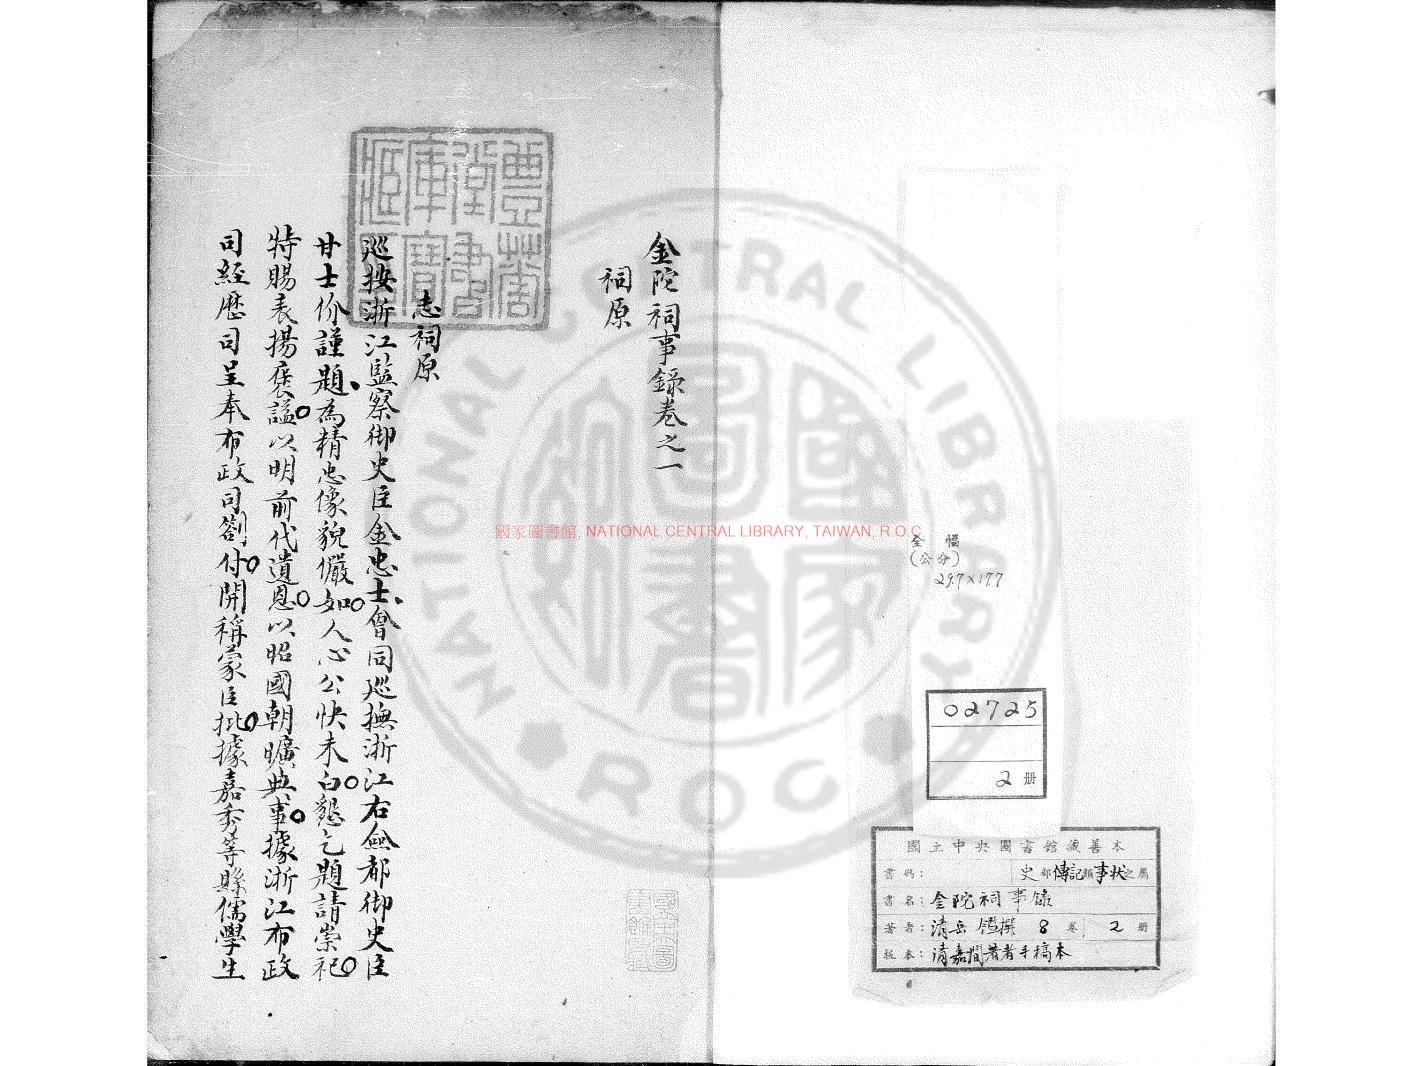 金陀祠事錄卷之一
祠原
志祠原
巡按浙江監察御史臣金忠士會同巡撫浙江右僉都御史臣
甘士价謹題為精忠像貌儼如人心公快未白懇乞題請崇祀
特賜表揚褒諡以明前代遺恩以昭國朝曠典事據浙江布政
司經歷司呈奉布政司劄付開稱蒙臣批據嘉秀等縣儒學生
豐華堂書庫寶藏印
國家圖書館, NATIONAL CENTRAL LIBRARY, TAIWAN, R.O.C
NATIONAL CENTRAL LIBRARY
ROC
國家圖書
全幅
(公分)
29.7×17.7
02725
2 册
國立中央圖書館藏善本
書碼： 史部傳記類事狀之屬
書名：金陀祠事錄
著者：清岳鑑撰 8 卷 2 册
版本：清嘉間著者手稿本